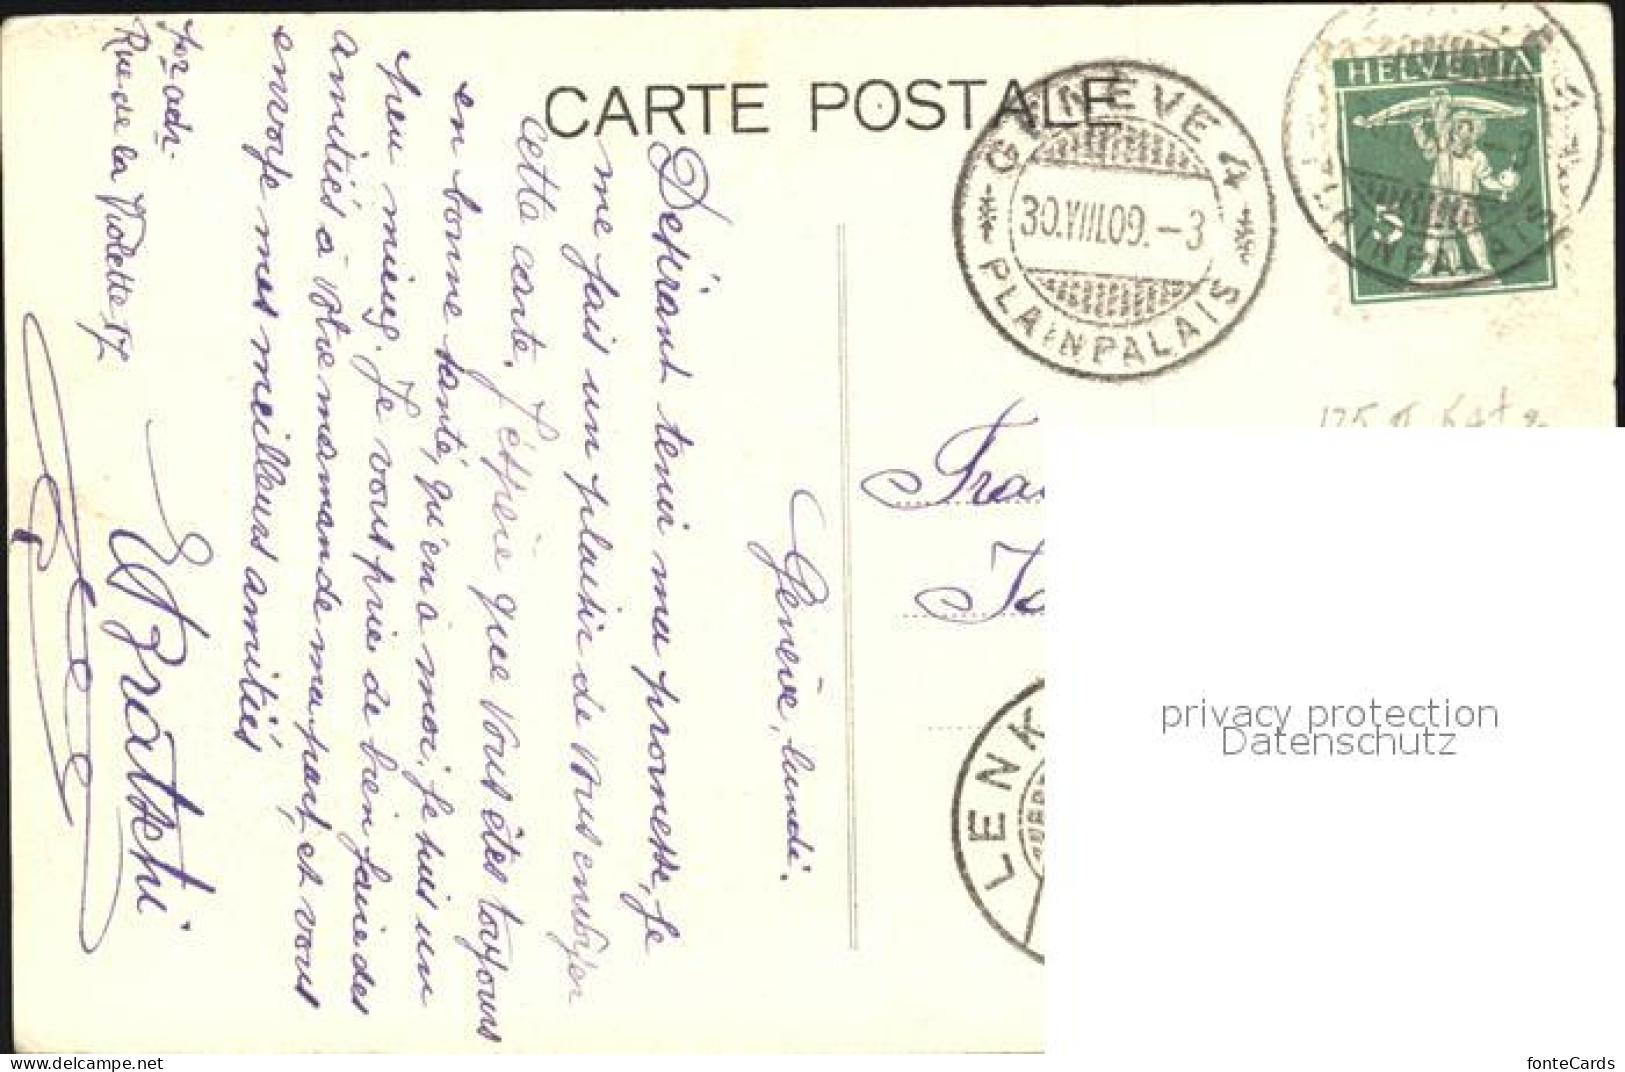 CARTE POSTALE
GENÈVE 4
30.VIII.09.-3
PLAINPALAIS
HELVETIA
5
PLAINPALAIS
Genève, lundi.
Désirant tenir ma promesse, je
me fais un plaisir de vous envoyer
cette carte. J'espère que vous êtes toujours
en bonne santé, qu'en à moi, je suis un
peu mieux. Je vous prie de bien faire des
amitiés à votre maman de ma part, et vous
envoye mes meilleurs amitiés
E Brätschi
adr.
Rue de la Violette 17
LEN
privacy protection
Datenschutz
fonteCards